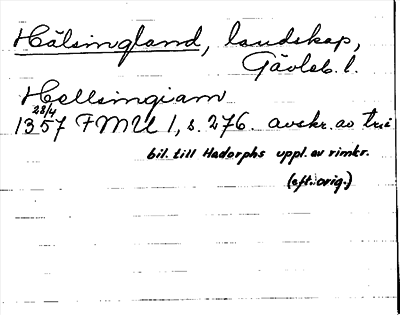 Hälsingland, landskap,
Gävleb. l.
Hellsingiam
28/4
1357 FMU 1, s. 276. avskr. av
bil. till Hadorphs uppl. av rimkr.
(eft. orig.)